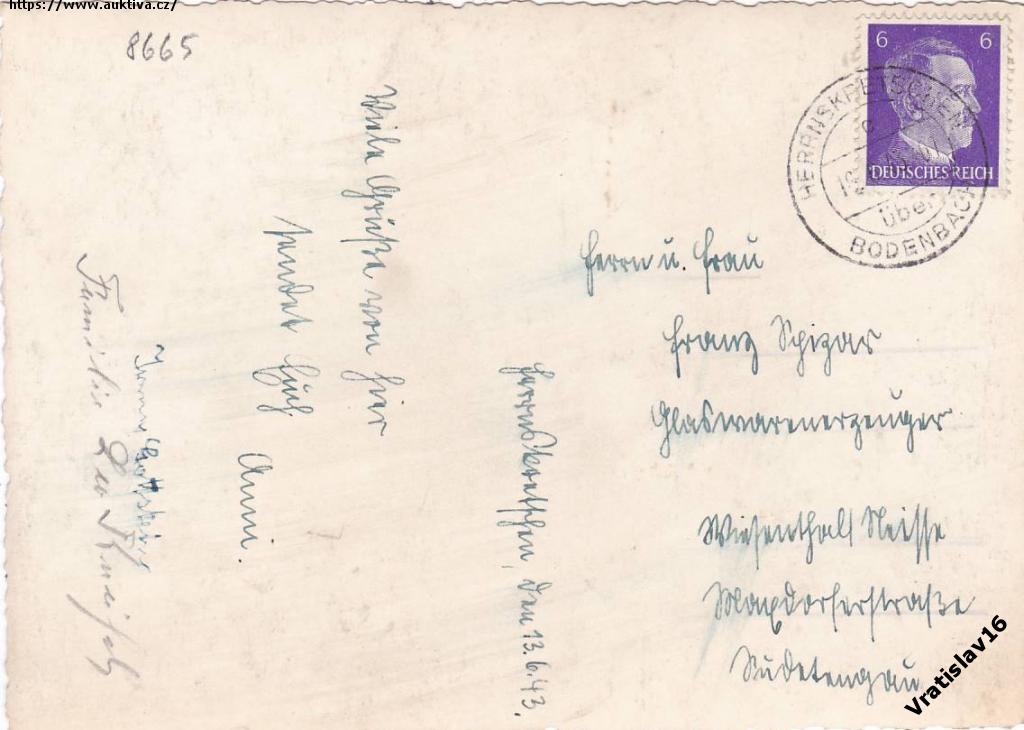 https://www.auktiva.cz/
8665
6 6
DEUTSCHES REICH
HERRNSKRETSCHEN
über
BODENBACH
Viele Grüße von hier
sendet Euch
Anni.
Familie Leo
Herrnskretschen, den 13.6.43.
Herrn u. Frau
Franz Schizar
Glaswarenerzeuger
Wiesenthal/Neisse
Maxdorferstraße
Sudetengau
Vratislav16